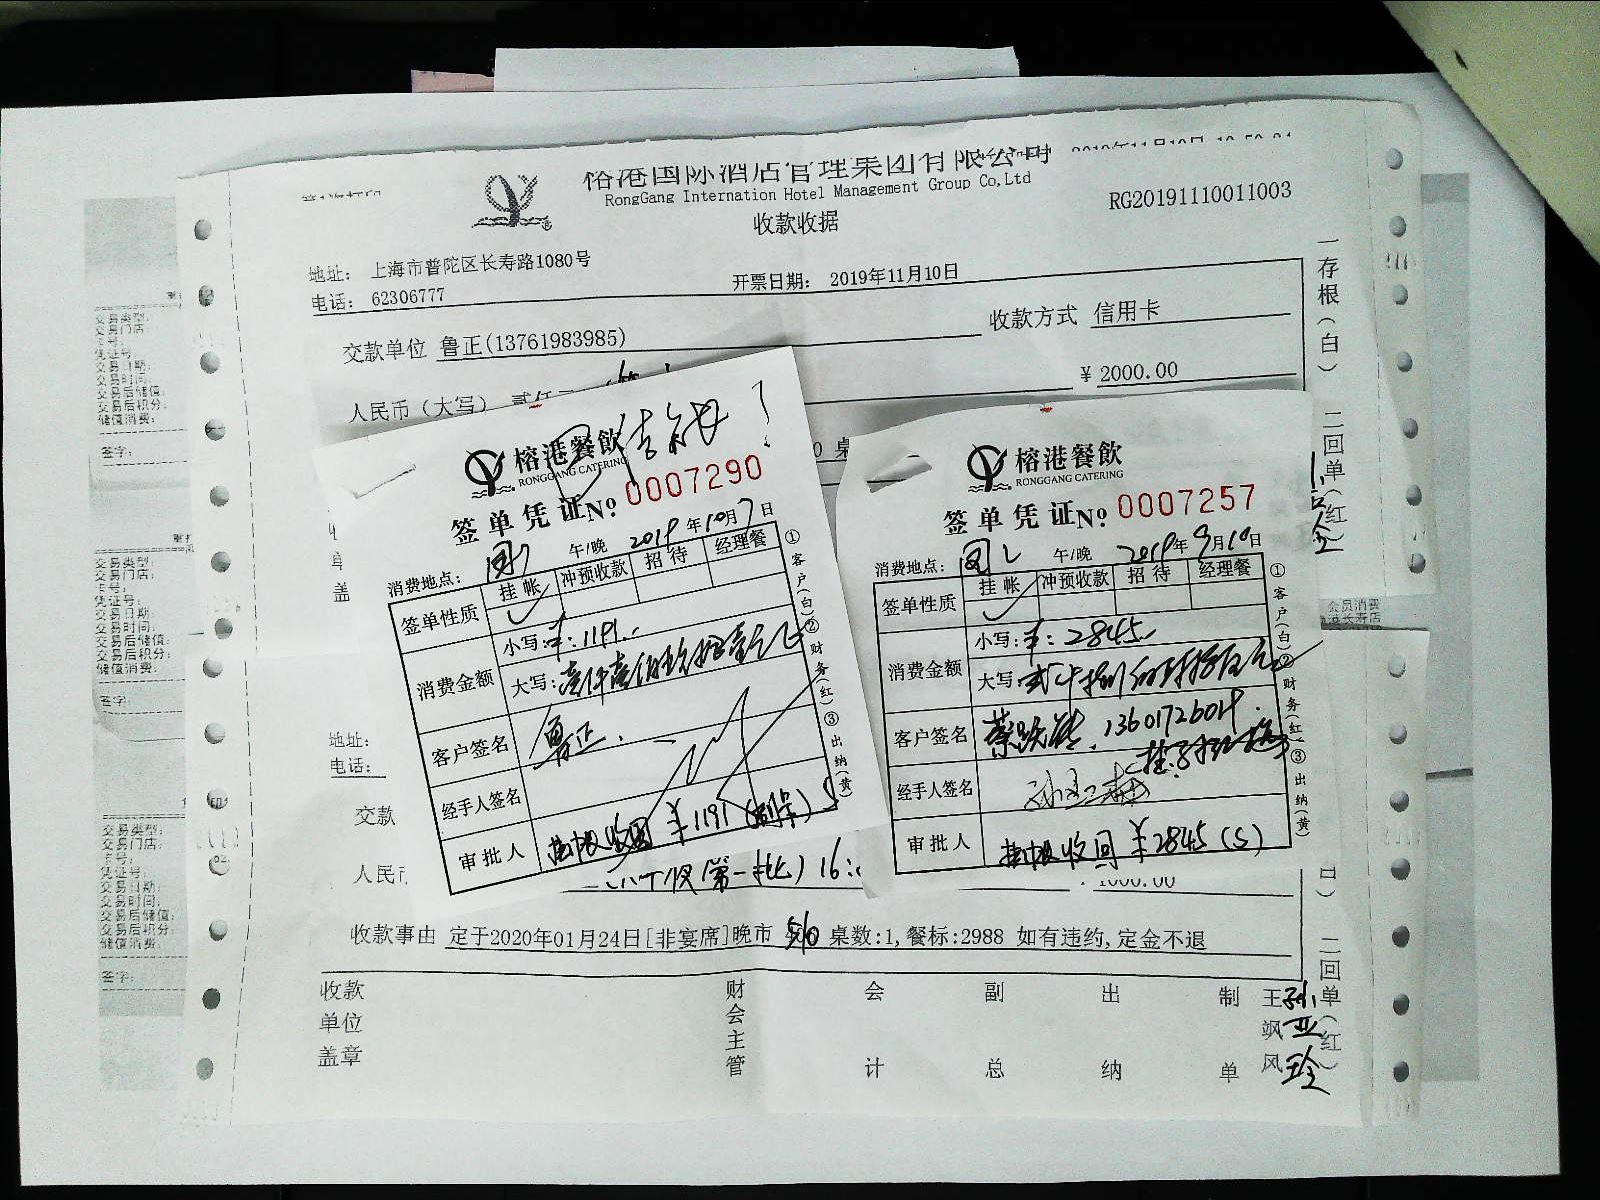 榕港国际酒店管理集团有限公司
RongGang Internation Hotel Management Group Co,Ltd
RG20191110011003
收款收据
地址: 上海市普陀区长寿路1080号
电话: 62306777
开票日期: 2019年11月10日
交款单位 鲁正(13761983985)
收款方式 信用卡
人民币（大写）
¥ 2000.00
一存根（白） 二回单（红）
榕港餐飲
RONGGANG CATERING
签单凭证 № 0007290
消费地点:
午/晚 2019年10月7日
签单性质
挂帐 冲预收款 招待 经理餐
消费金额
小写: ¥: 1191.
大写: 壹仟壹佰玖拾壹元
客户签名
鲁正.
经手人签名
审批人
挂帐收回 ¥1191 (刷卡)
①客户(白) ②财务(红) ③出纳(黄)
榕港餐飲
RONGGANG CATERING
签单凭证 № 0007257
消费地点:
午/晚 2019年9月10日
签单性质
挂帐 冲预收款 招待 经理餐
消费金额
小写: ¥: 2845.
大写:
客户签名
经手人签名
审批人
挂帐收回 ¥2845 (S)
①客户(白) ②财务(红) ③出纳(黄)
地址:
电话:
交款
人民币
(第一批) 16:
1000.00
收款事由 定于2020年01月24日[非宴席]晚市 510 桌数:1,餐标:2988 如有违约,定金不退
收款单位盖章
财会主管
会计
副总
出纳
制单
王飒风
孙亚玲
二回单（红）
交易类型:
交易门店:
卡号:
凭证号:
交易日期:
交易时间:
交易后储值:
交易后积分:
储值消费:
签字:
交易类型:
交易门店:
卡号:
凭证号:
交易日期:
交易时间:
交易后储值:
交易后积分:
储值消费:
签字:
交易类型:
交易门店:
卡号:
凭证号:
交易日期:
交易时间:
交易后储值:
交易后积分:
储值消费:
签字:
会员消费